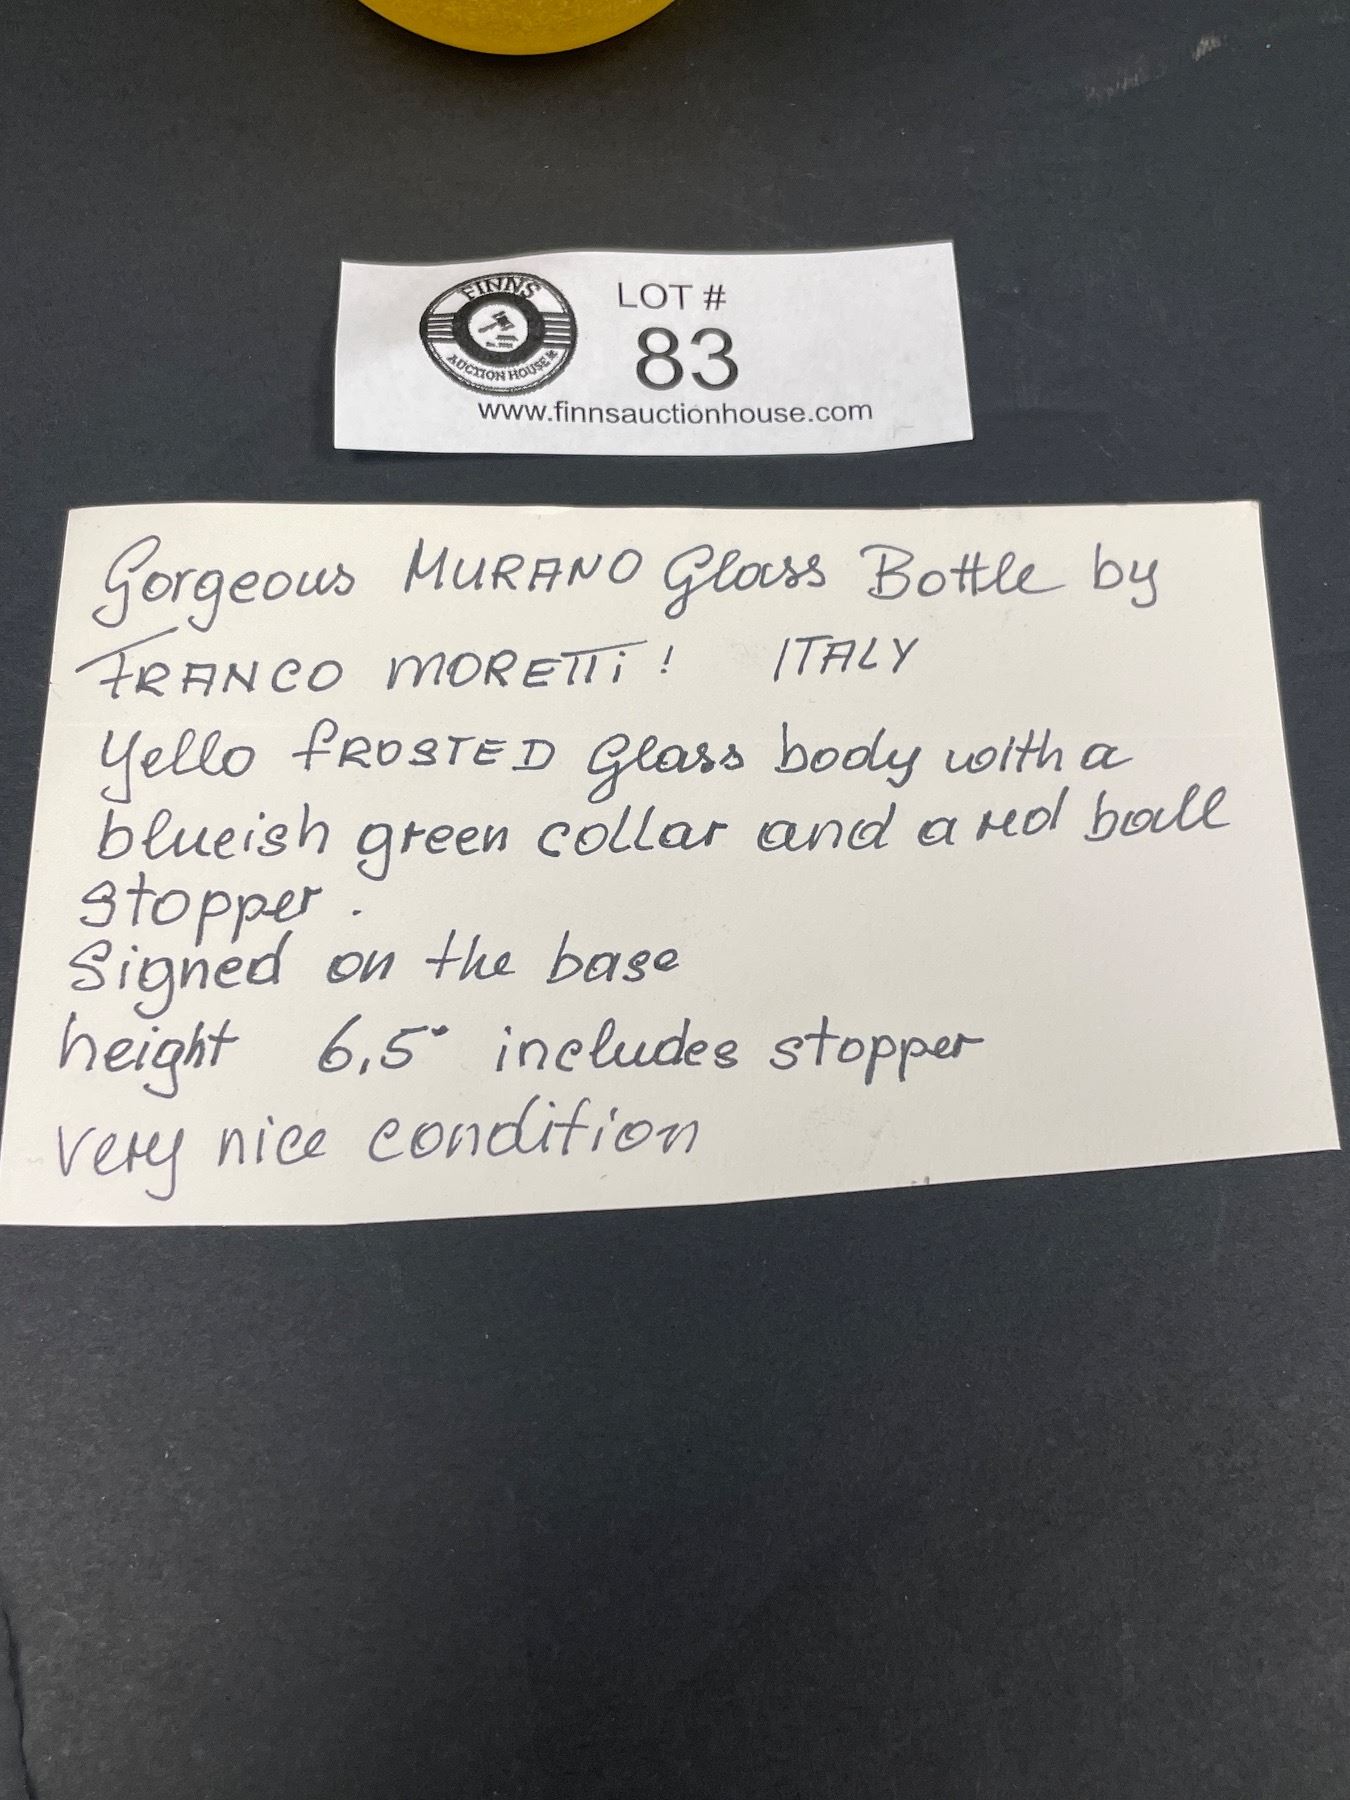 FINNS
AUCTION HOUSE
LOT #
83
www.finnsauctionhouse.com
Gorgeous MURANO Glass Bottle by
FRANCO MORETTi! ITALY
Yello fROSTED Glass body with a
blueish green collar and a red ball
stopper.
Signed on the base
height 6,5" includes stopper
very nice condition